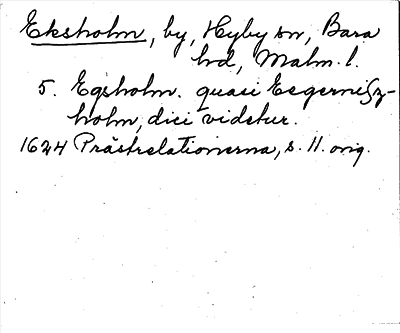 Eksholm, by, Hyby sn, Bara
hd, Malm. l.
5. Egsholm. quasi Eegerniſz-
holm, dici videtur.
1624 Prästrelationerna, s. 11. orig.